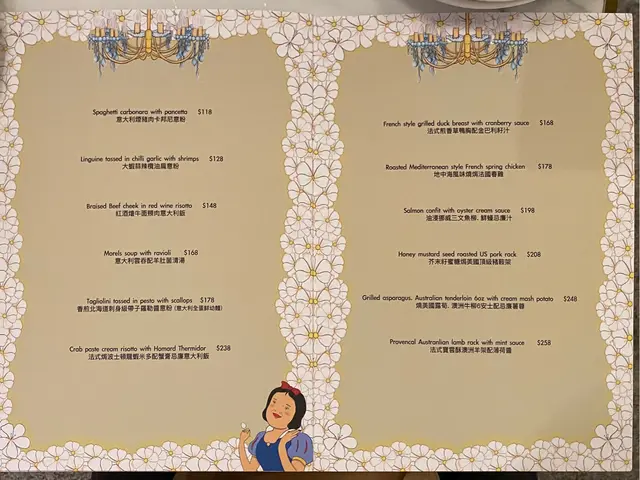 Spaghetti carbonara with pancetta $118
意大利煙豬肉卡邦尼意粉
Linguine tossed in chilli garlic with shrimps $128
大蝦蒜辣欖油扁意粉
Braised Beef cheek in red wine risotto $148
紅酒燴牛面頰肉意大利飯
Morels soup with ravioli $168
意大利雲吞配羊肚菌清湯
Tagliolini tossed in pesto with scallops $178
香煎北海道刺身級帶子羅勒醬意粉 (意大利全蛋鮮幼麵)
Crab paste cream risotto with Homard Thermidor $238
法式焗波士頓龍蝦米多配蟹膏忌廉意大利飯
French style grilled duck breast with cranberry sauce $168
法式煎香草鴨胸配金巴利籽汁
Roasted Mediterranean style French spring chicken $178
地中海風味燒焗法國春雞
Salmon confit with oyster cream sauce $198
油浸挪威三文魚柳, 鮮蠔忌廉汁
Honey mustard seed roasted US pork rack $208
芥末籽蜜糖焗美國頂級豬鞍架
Grilled asparagus, Australian tenderloin 6oz with cream mash potato $248
燒美國露荀, 澳洲牛柳6安士配忌廉薯蓉
Provencal Australian lamb rack with mint sauce $258
法式寶雲酥澳洲羊架配薄荷醬